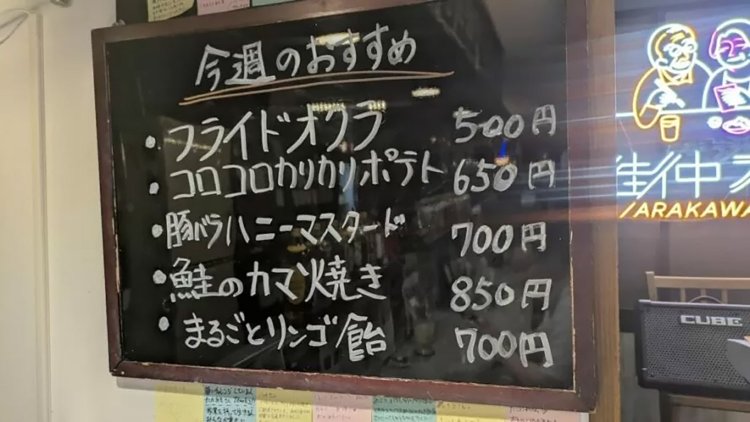 今週のおすすめ
・フライドオクラ 500円
・コロコロカリカリポテト 650円
・豚バラハニーマスタード 700円
・鮭のカマ焼き 850円
・まるごとリンゴ飴 700円
ARAKAWA
CUBE